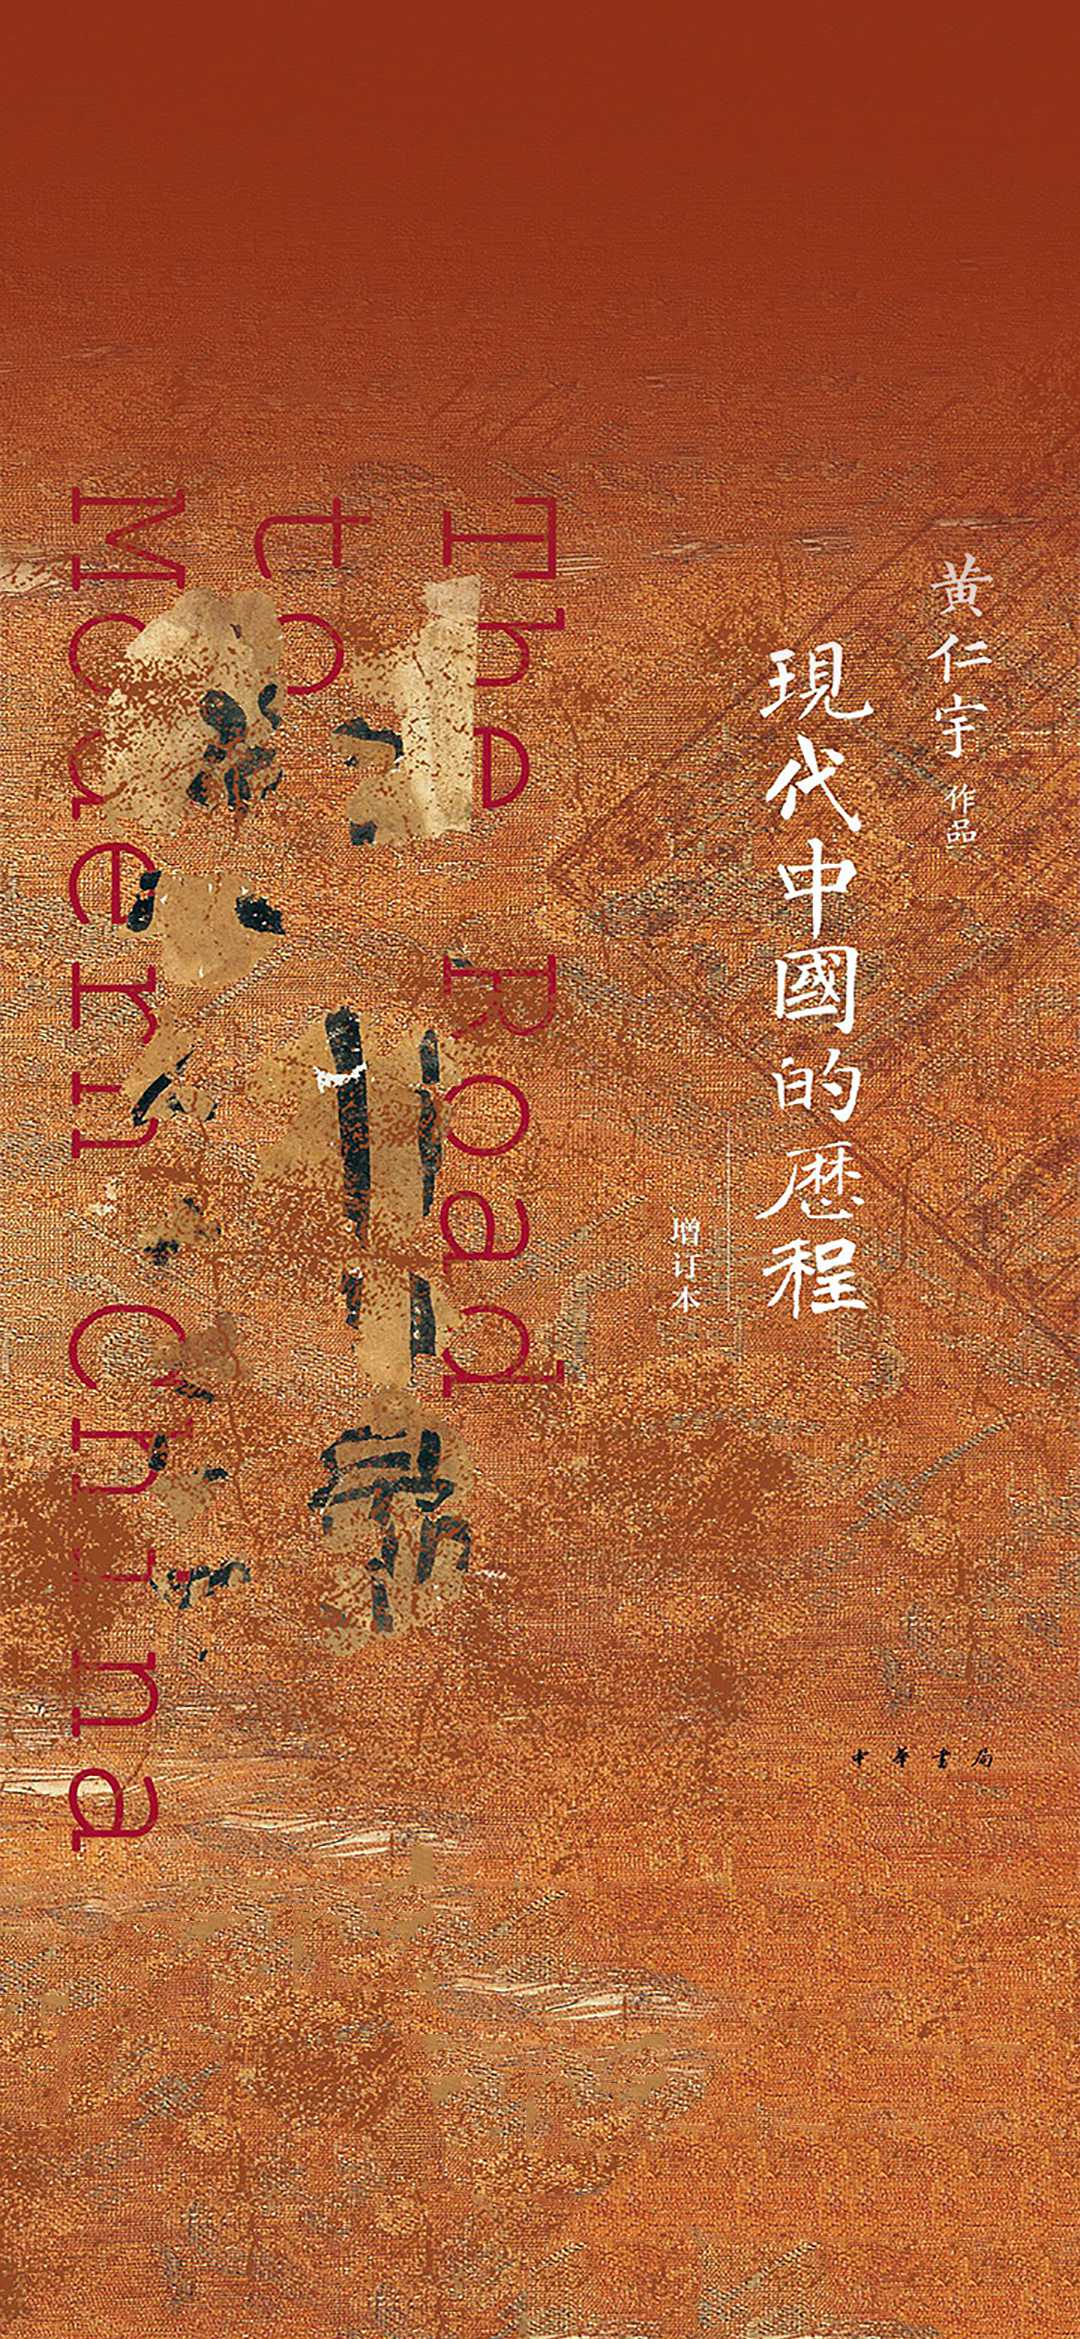 黄仁宇 作品
現代中國的歷程
增订本
The Road
to
Modern China
中華書局